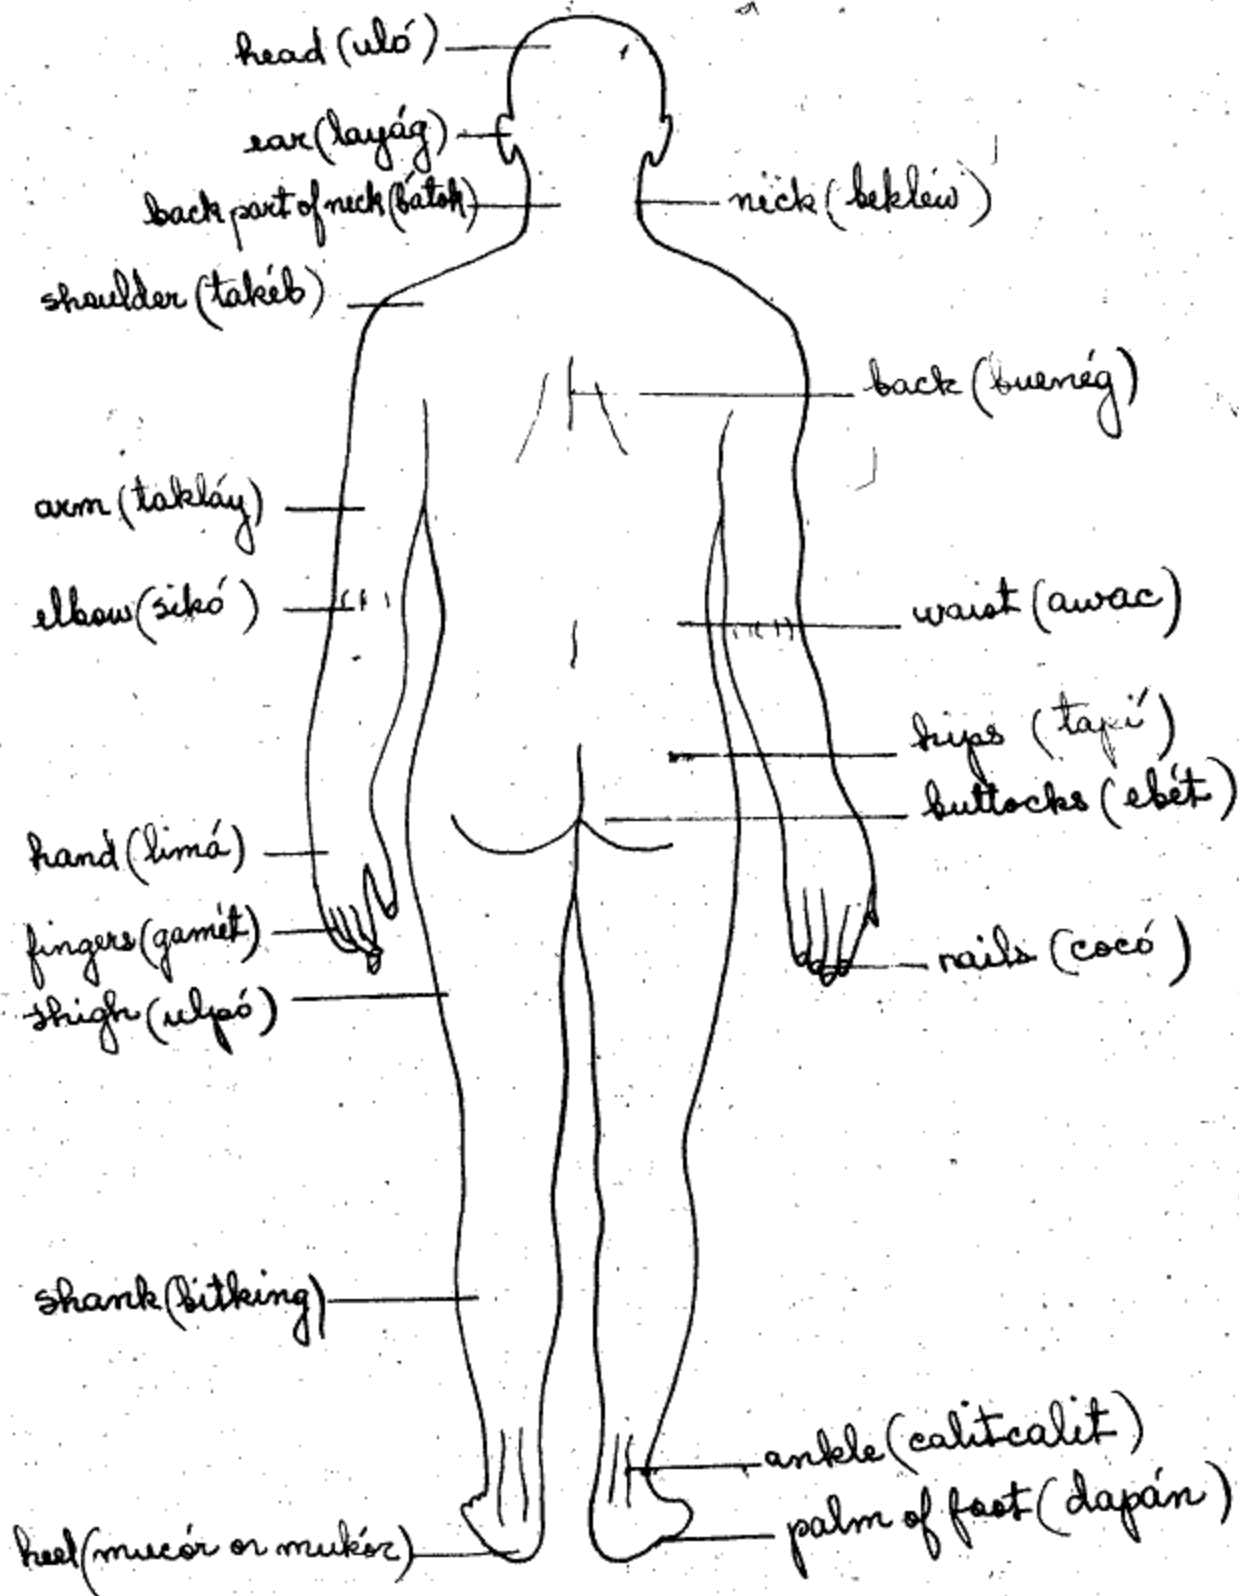 head (uló)
ear (layág)
back part of neck (bátok)
neck (bekléw)
shoulder (takéb)
back (buenég)
arm (takláy)
elbow (sikó)
waist (awac)
hips (tapí)
buttocks (ebét)
hand (limá)
fingers (gamét)
nails (cocó)
thigh (ulpó)
shank (bitking)
ankle (calitcalit)
palm of foot (dapán)
heel (mucór or mukór)